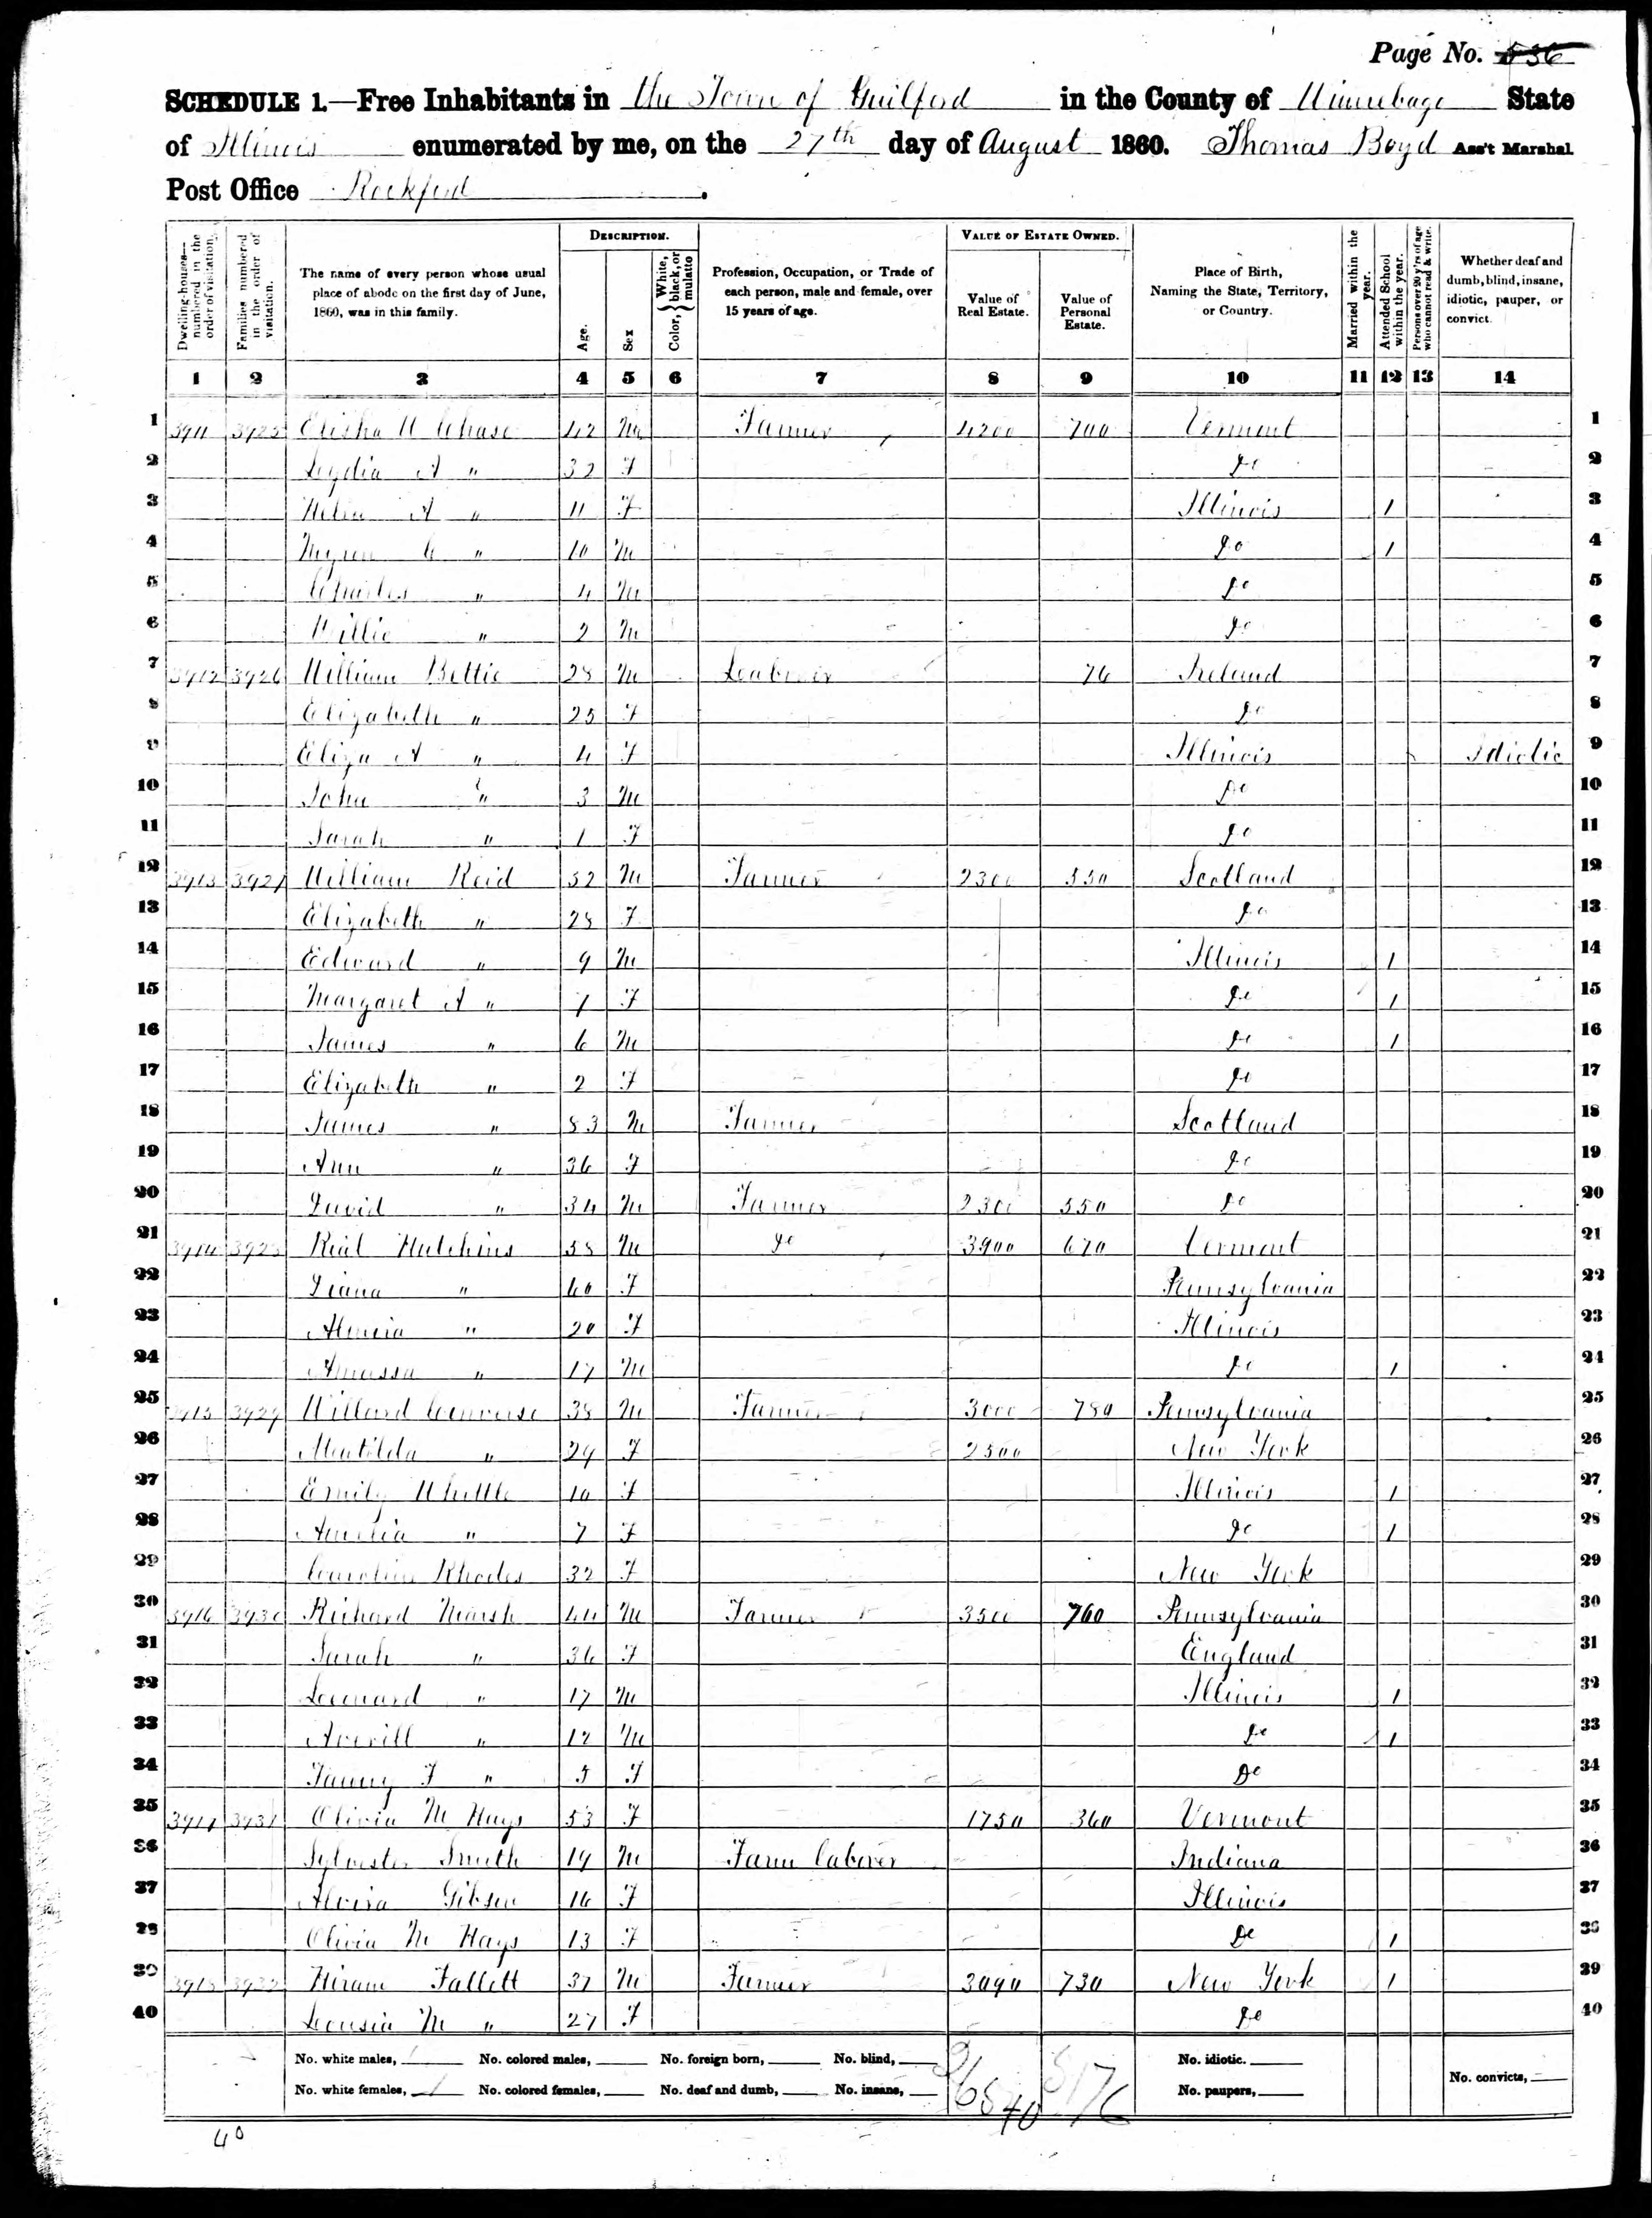 Page No. 536
SCHEDULE 1.—Free Inhabitants in the Town of Guilford in the County of Winnebago State
of Illinois enumerated by me, on the 27th day of August 1860. Thomas Boyd Ass't Marshal
Post Office Rockford.
Dwelling-houses—numbered in the order of visitation.
Families numbered in the order of visitation.
The name of every person whose usual place of abode on the first day of June, 1860, was in this family.
DESCRIPTION.
Age.
Sex
Color, { White, black, or mulatto
Profession, Occupation, or Trade of each person, male and female, over 15 years of age.
VALUE OF ESTATE OWNED.
Value of Real Estate.
Value of Personal Estate.
Place of Birth, Naming the State, Territory, or Country.
Married within the year.
Attended School within the year.
Persons over 20 y'rs of age who cannot read & write.
Whether deaf and dumb, blind, insane, idiotic, pauper, or convict.
1 2 3 4 5 6 7 8 9 10 11 12 13 14
1 3911 3925 Elisha W Chase 42 M Farmer 4200 700 Vermont 1
2 Lydia A " 32 F do 2
3 A " 11 F Illinois 1 3
4 Myron C " 10 M do 1 4
5 Charles " 4 M do 5
6 Willie " 2 M do 6
7 3912 3926 William Bettie 28 M Leaborer 76 Ireland 7
8 Elizabeth " 25 F do 8
9 Eliza A " 4 F Illinois Idiotic 9
10 John " 3 M do 10
11 Sarah " 1 F do 11
12 3913 3927 William Reid 52 M Farmer 2300 550 Scotland 12
13 Elizabeth " 28 F do 13
14 Edward " 9 M Illinois 1 14
15 Margaret A " 7 F do 1 15
16 James " 6 M do 1 16
17 Elizabeth " 2 F do 17
18 James " 83 M Farmer Scotland 18
19 Ann " 36 F do 19
20 David " 34 M Farmer 2300 550 do 20
21 3914 3928 Rial Hutchins 58 M do 3900 670 Vermont 21
22 Diana " 60 F Pennsylvania 22
23 Almeia " 20 F Illinois 23
24 Amassa " 17 M do 1 24
25 3915 3929 Willard Converse 38 M Farmer 3000 780 Pennsylvania 25
26 Mentilda " 29 F 2500 New York 26
27 Emily Whittle 10 F Illinois 1 27
28 Amelia " 7 F do 1 28
29 Caroline Rhodes 32 F New York 29
30 3916 3930 Richard Marsh 44 M Farmer 3500 760 Pennsylvania 30
31 Sarah " 36 F England 31
32 Leonard " 17 M Illinois 1 32
33 Averill " 12 M do 1 33
34 Fanny F " 5 F do 34
35 3917 3931 Olivia M Hays 53 F 1750 360 Vermont 35
36 Sylvester Smith 19 M Farm laborer Indiana 36
37 Alvira Gibson 16 F Illinois 37
38 Olivia M Hays 13 F do 1 38
39 3918 3932 Hiram Fallett 37 M Farmer 3090 730 New York 1 39
40 Lousia M " 27 F do 40
No. white males, No. colored males, No. foreign born, No. blind, No. idiotic.
No. white females, No. colored females, No. deaf and dumb, No. insane, No. paupers, No. convicts,
40